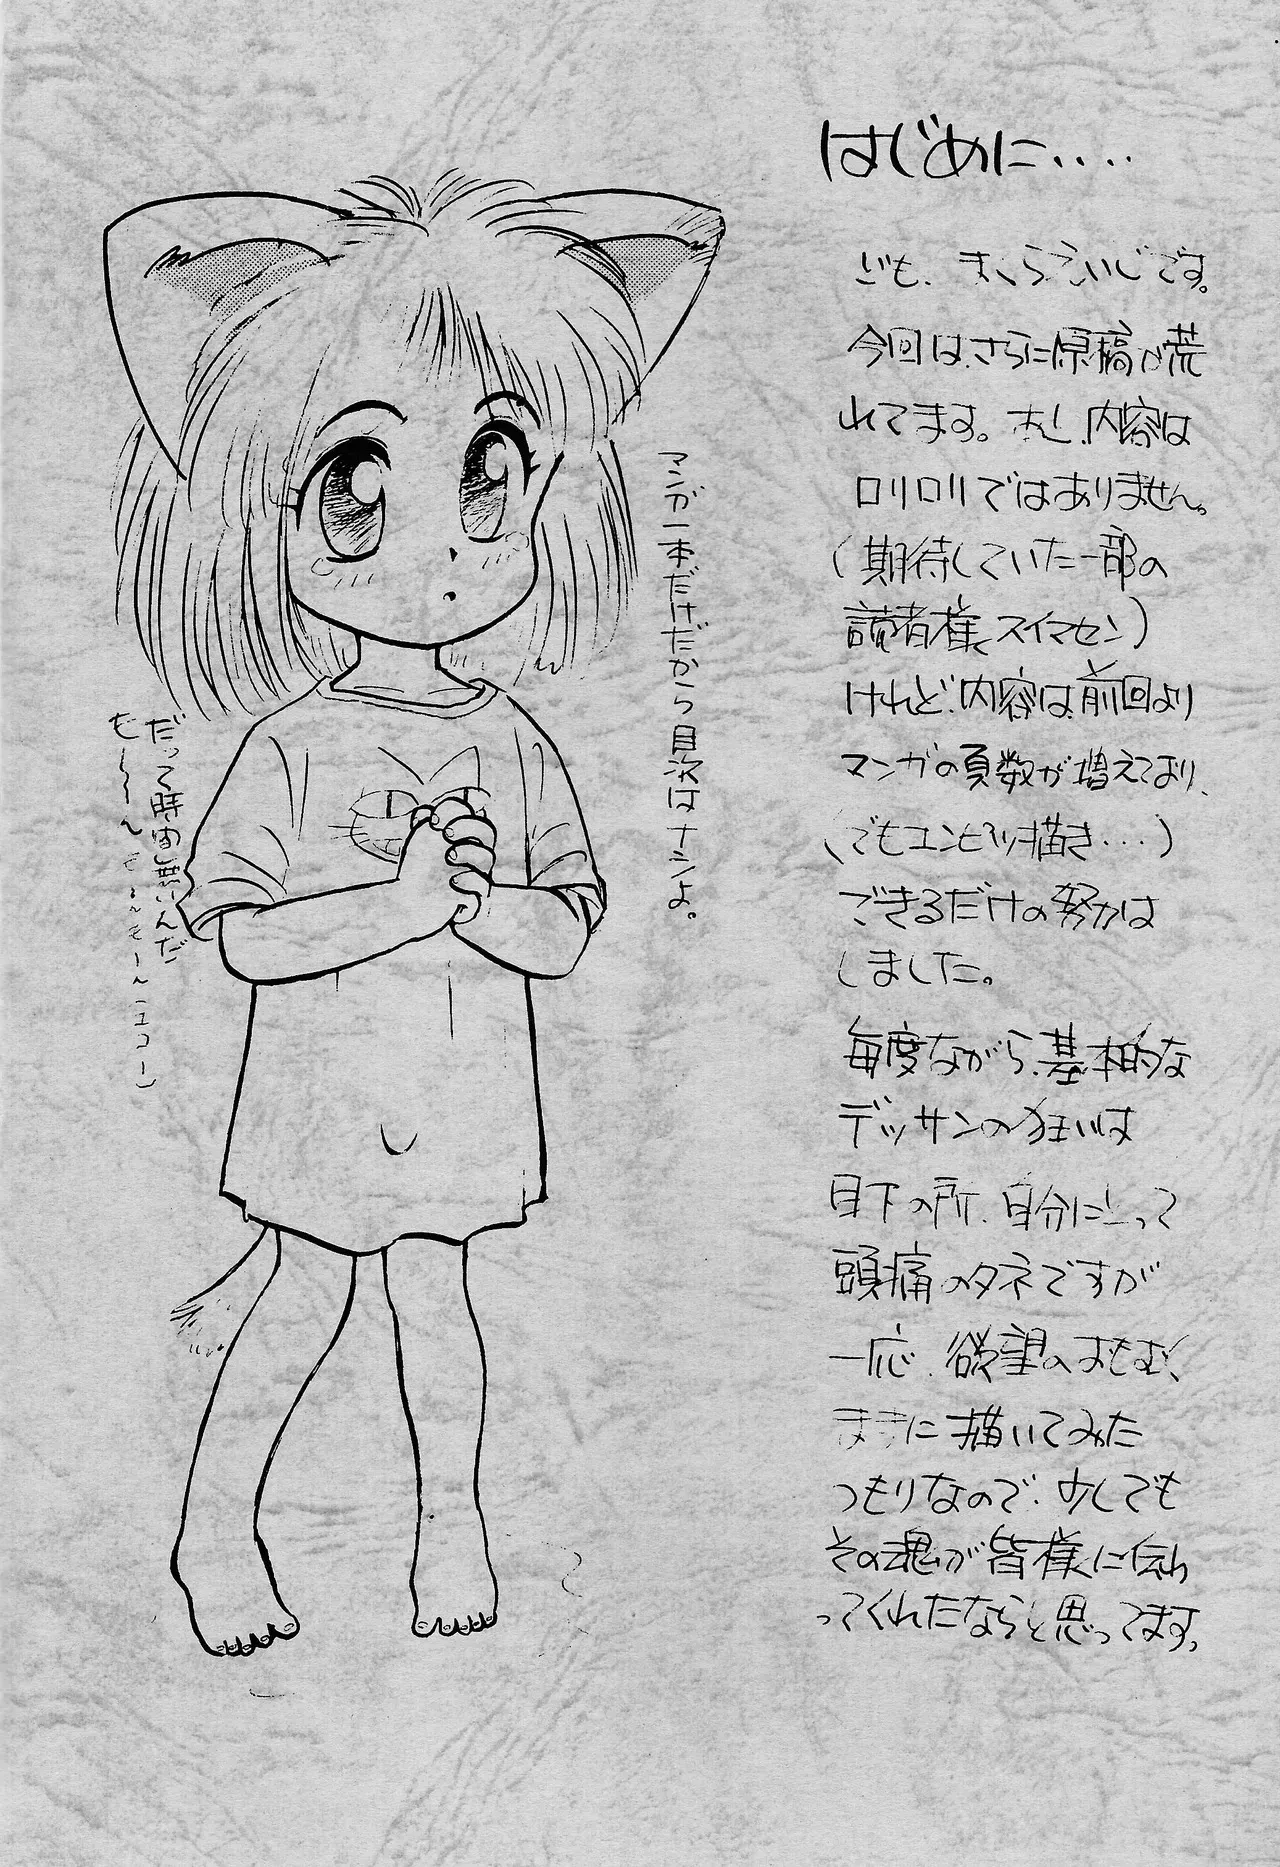 はじめに‥‥
ども、まくらえいじです。
今回は、さらに原稿が荒
れてます。あと、内容は
ロリロリではありません。
(期待していた一部の
読者様、スイマセン)
けれど、内容は、前回より
マンガの頁数が増えており、
(でもエンピツ描き‥‥)
できるだけの努力は
しました。
毎度ながら、基本的な
デッサンの狂いは
目下の所、自分にとって
頭痛のタネですが
一応、欲望のおもむく
ままに描いてみた
つもりなので、少しでも
その魂が皆様に伝わ
ってくれたならと思ってます。
マンガ一本だけだから目次はナシよ。
だって時間無いんだ
も〜〜ん もーんもーん(エコー)